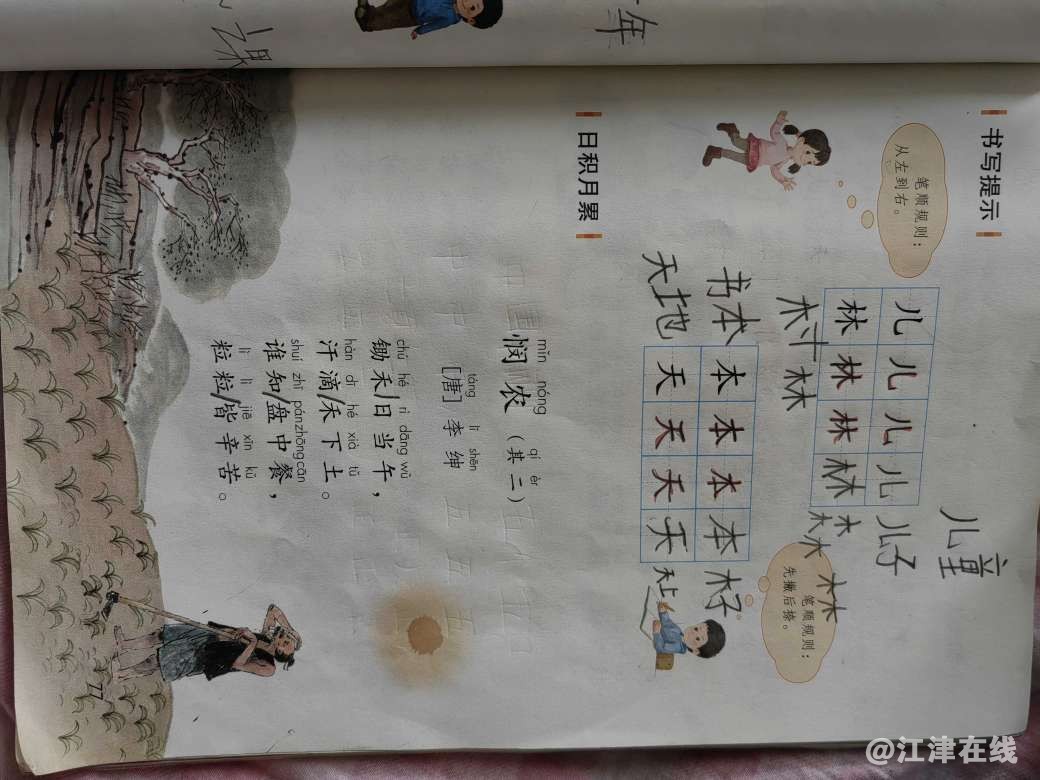 年
课
书写提示
笔顺规则：
从左到右。
儿童
儿 儿 儿 儿 儿子
林 林 林 林 木
木林
林
笔顺规则：
先撇后捺。
书本 本 本 本 本
天地 天 天 天 天
日积月累
mǐn nóng qí èr
悯农（其二）
táng lǐ shēn
［唐］李 绅
chú hé rì dāng wǔ
锄禾/日当午，
hàn dī hé xià tǔ
汗滴/禾下土。
shuí zhī pán zhōng cān
谁知/盘中餐，
lì lì jiē xīn kǔ
粒粒/皆辛苦。
77
@江津在线